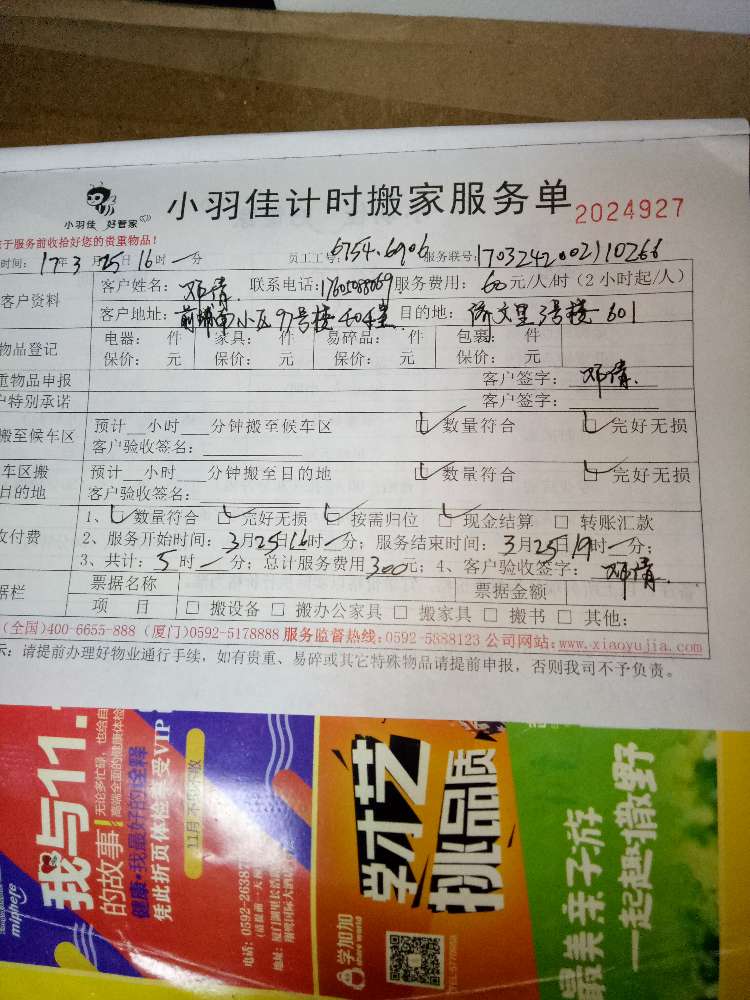 小羽佳 好管家
小羽佳计时搬家服务单 2024927
于服务前收拾好您的贵重物品!
时间: 17年3月25日16时一分 员工工号: 6754.6906 服务联号: 170324200210266
客户资料 客户姓名: 邓倩 联系电话: 服务费用: 60元/人/时 (2小时起/人)
客户地址: 前埔南小区97号楼 目的地: 侨文里3号楼601
物品登记 电器: 件 家具: 件 易碎品: 件 包裹: 件
保价: 元 保价: 元 保价: 元 保价: 元
重物品申报 客户签字: 邓倩.
户特别承诺 客户签字:
搬至候车区 预计__小时__分钟搬至候车区 ☑ 数量符合 ☑ 完好无损
客户验收签名:
车区搬 预计__小时__分钟搬至目的地 ☑ 数量符合 ☑ 完好无损
目的地 客户验收签名:
收付费 1、☑ 数量符合 ☑ 完好无损 ☑ 按需归位 ☑ 现金结算 □ 转账汇款
2、服务开始时间: 3月25日16时一分; 服务结束时间: 3月25日19时一分;
3、共计: 5时一分; 总计服务费用300元; 4、客户验收签字: 邓倩.
据栏 票据名称 票据金额
项 目 □ 搬设备 □ 搬办公家具 □ 搬家具 □ 搬书 □ 其他:
(全国)400-6655-888 (厦门)0592-5178888 服务监督热线: 0592-5888123 公司网站: www.xiaoyujia.com
示: 请提前办理好物业通行手续, 如有贵重、易碎或其它特殊物品请提前申报, 否则我司不予负责。
我与11.
的故事!
无论多忙碌, 也给自
高端全面的健康体检
健康·我最好的诠释
凭此折页体检享受VIP
11月
电话: 0592-26387
miphere
学才艺
挑品质
学加加
最美亲子游
一起趣撒野